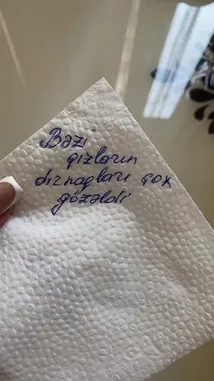 Bəzi
qızların
dırnaqları çox
gözəldi